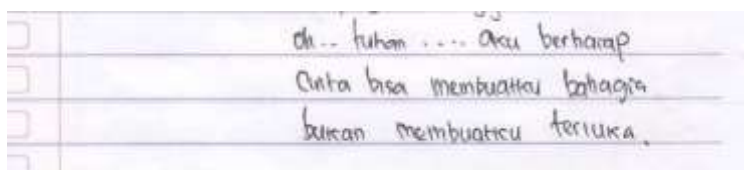 oh.. tuhan .... aku berharap
Cinta bisa membuatku bahagia
bukan membuatku terluka.